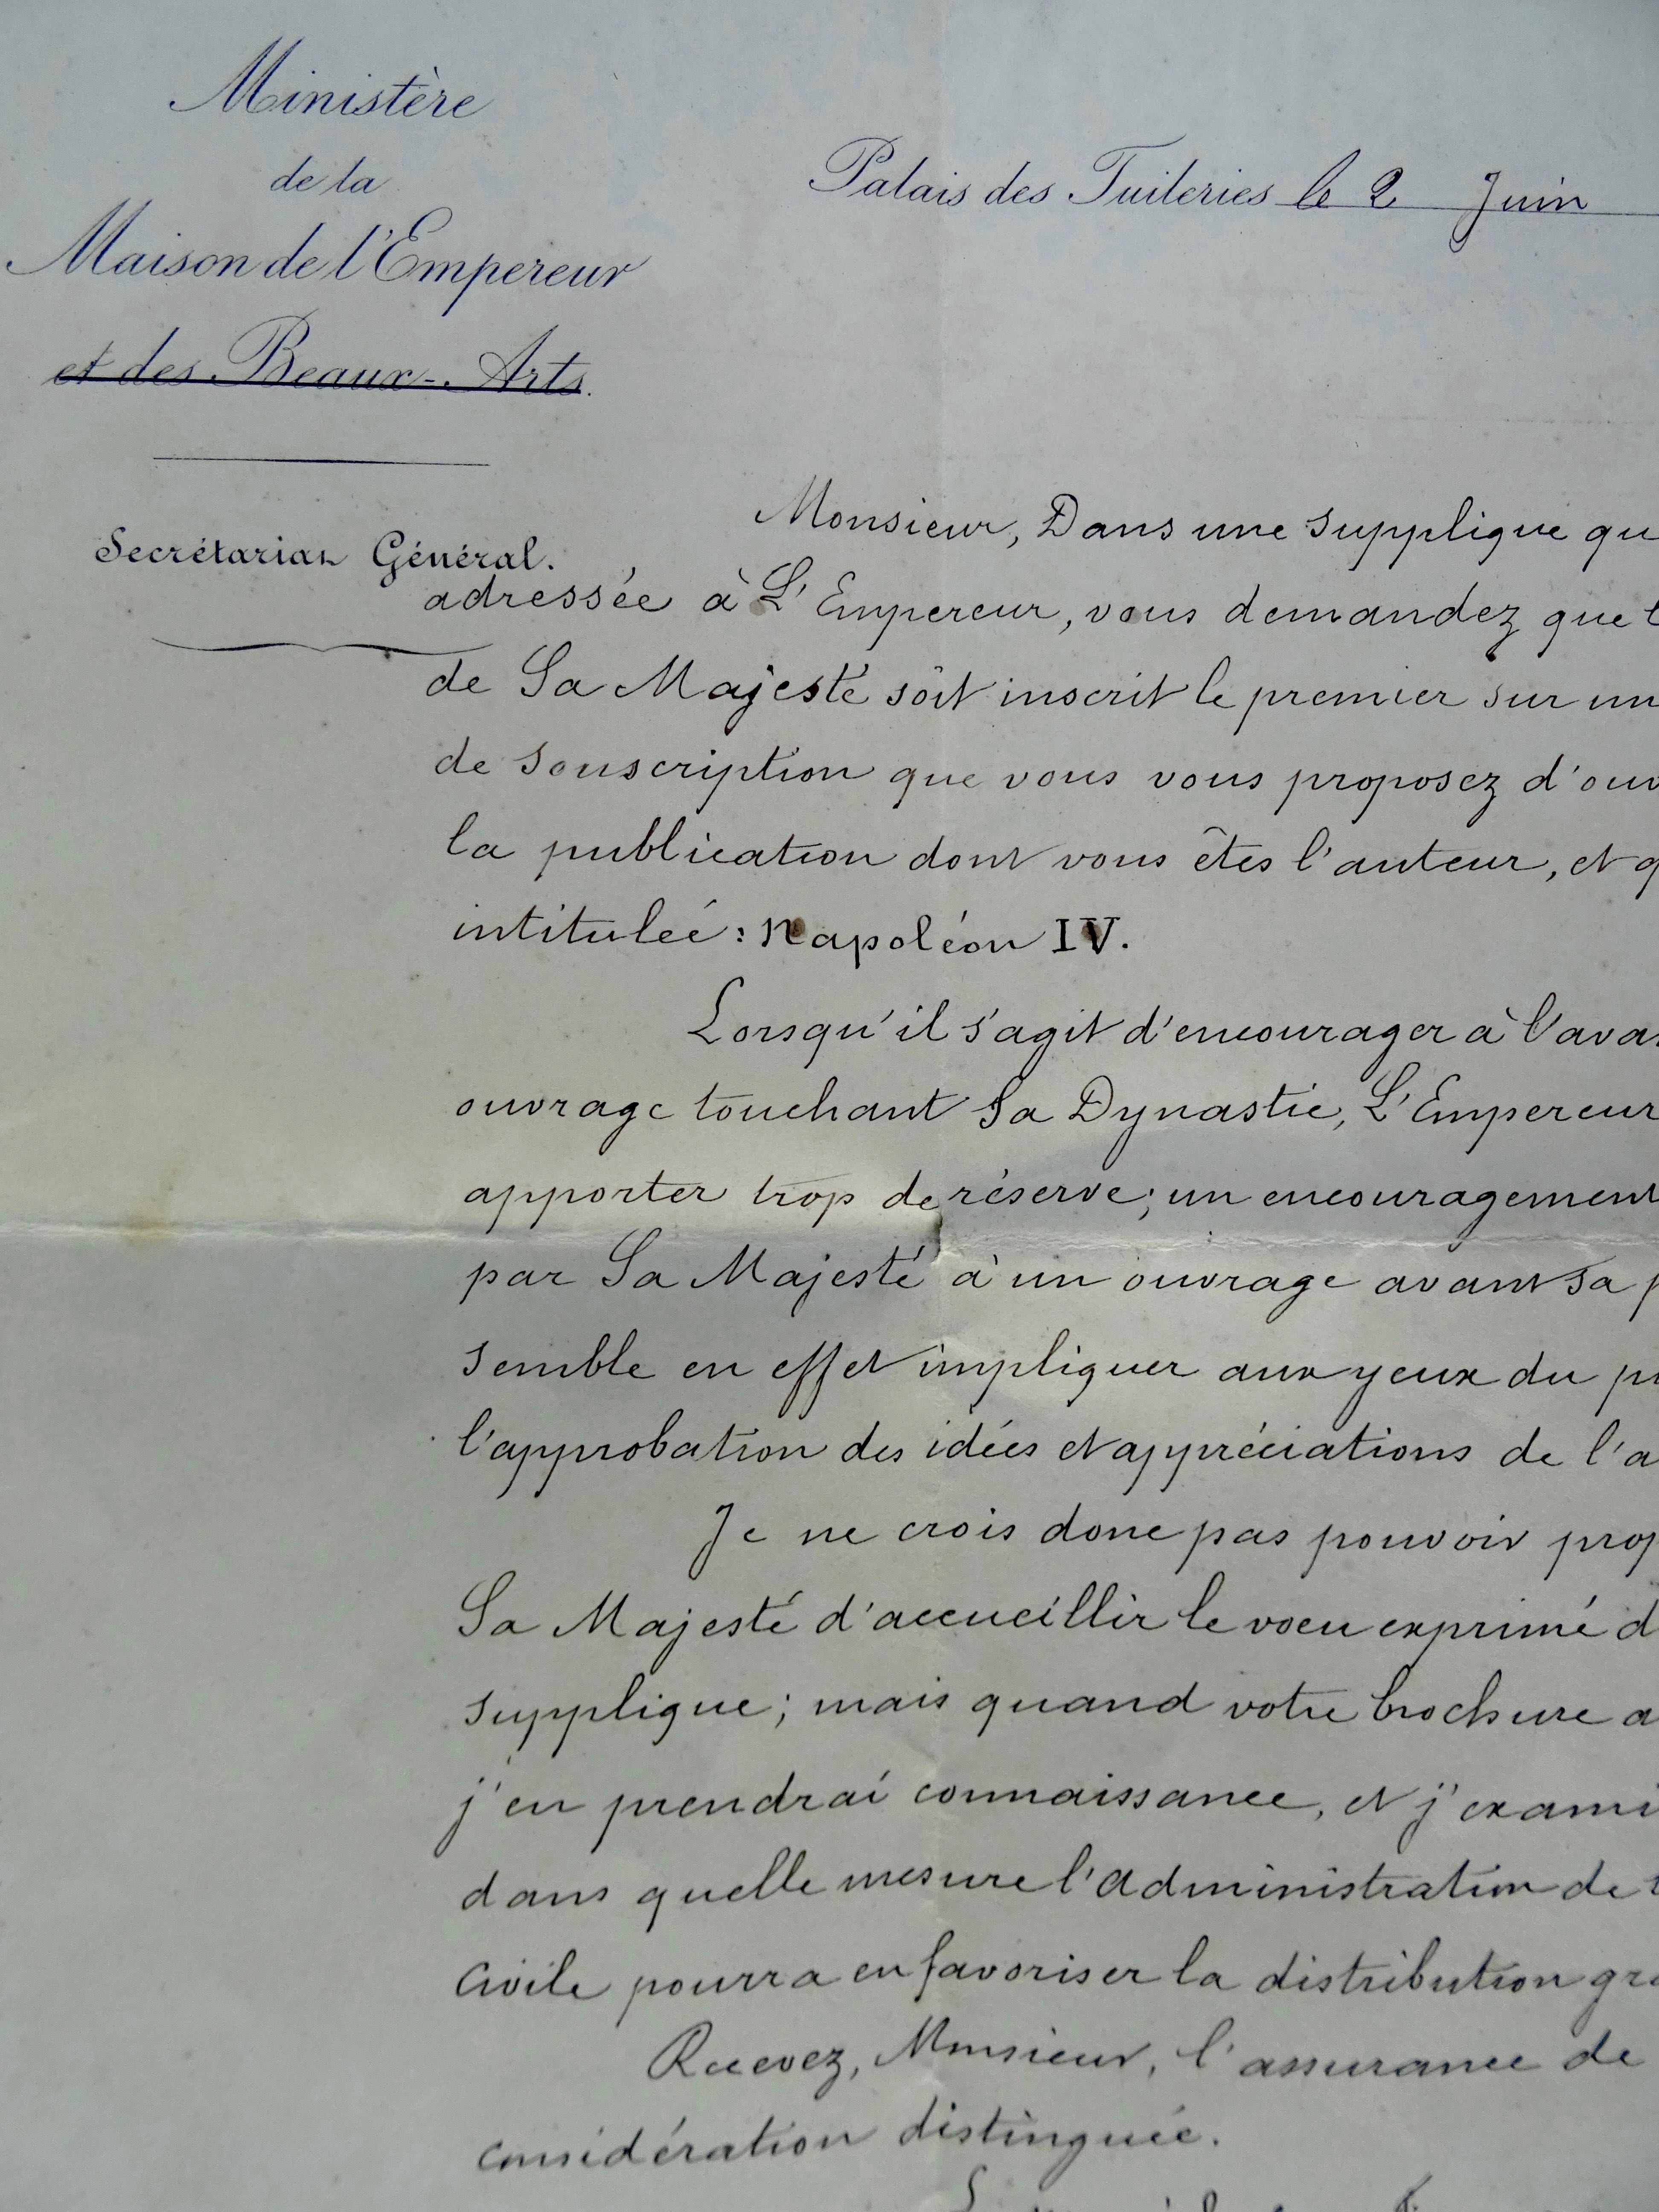 Ministère
de la
Maison de l'Empereur
et des Beaux-Arts.
Palais des Tuileries le 2 Juin
Secrétariat Général.
Monsieur, Dans une supplique qu
adressée à L'Empereur, vous demandez que l
de Sa Majesté soit inscrit le premier sur un
de souscription que vous vous proposez d'ouv
la publication dont vous êtes l'auteur, et q
intitulée : Napoléon IV.
Lorsqu'il s'agit d'encourager à l'avan
ouvrage touchant Sa Dynastie, L'Empereur
apporter trop de réserve; un encouragement
par Sa Majesté à un ouvrage avant sa p
semble en effet impliquer aux yeux du pu
l'approbation des idées et appréciations de l'a
Je ne crois donc pas pouvoir prop
Sa Majesté d'accueillir le voeu exprimé d
supplique; mais quand votre brochure a
j'en prendrai connaissance, et j'exami
dans quelle mesure l'administration de l
Civile pourra en favoriser la distribution gra
Recevez, Monsieur, l'assurance de
considération distinguée.